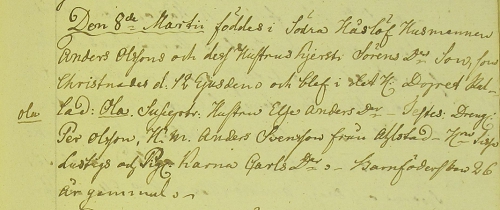 Don 8de Martii föddes i Södra Håslöf Husmannen
Anders Olssons och dess Hustrus Kjersti Sörens Dr Son, som
Christnades d. 12 Ejusdem och blef i det H. Dopet kal-
Ola
lad: Ola. Susceptr: Hustru Else Anders Dr – Testes: Dreng:
Per Olsson, H. m. Anders Svensson från Alstad –
och Pig: Karna Carls Dr – Barnföderskan 26
år gammal